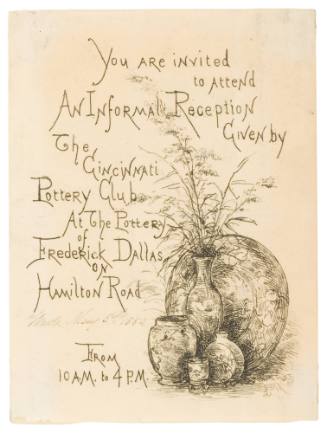 You are invited
to attend
An Informal Reception
Given by
The
Cincinnati
Pottery Club
At The Pottery
of
Frederick Dallas
on
Hamilton Road
May
From
10 A.M. to 4 P.M.